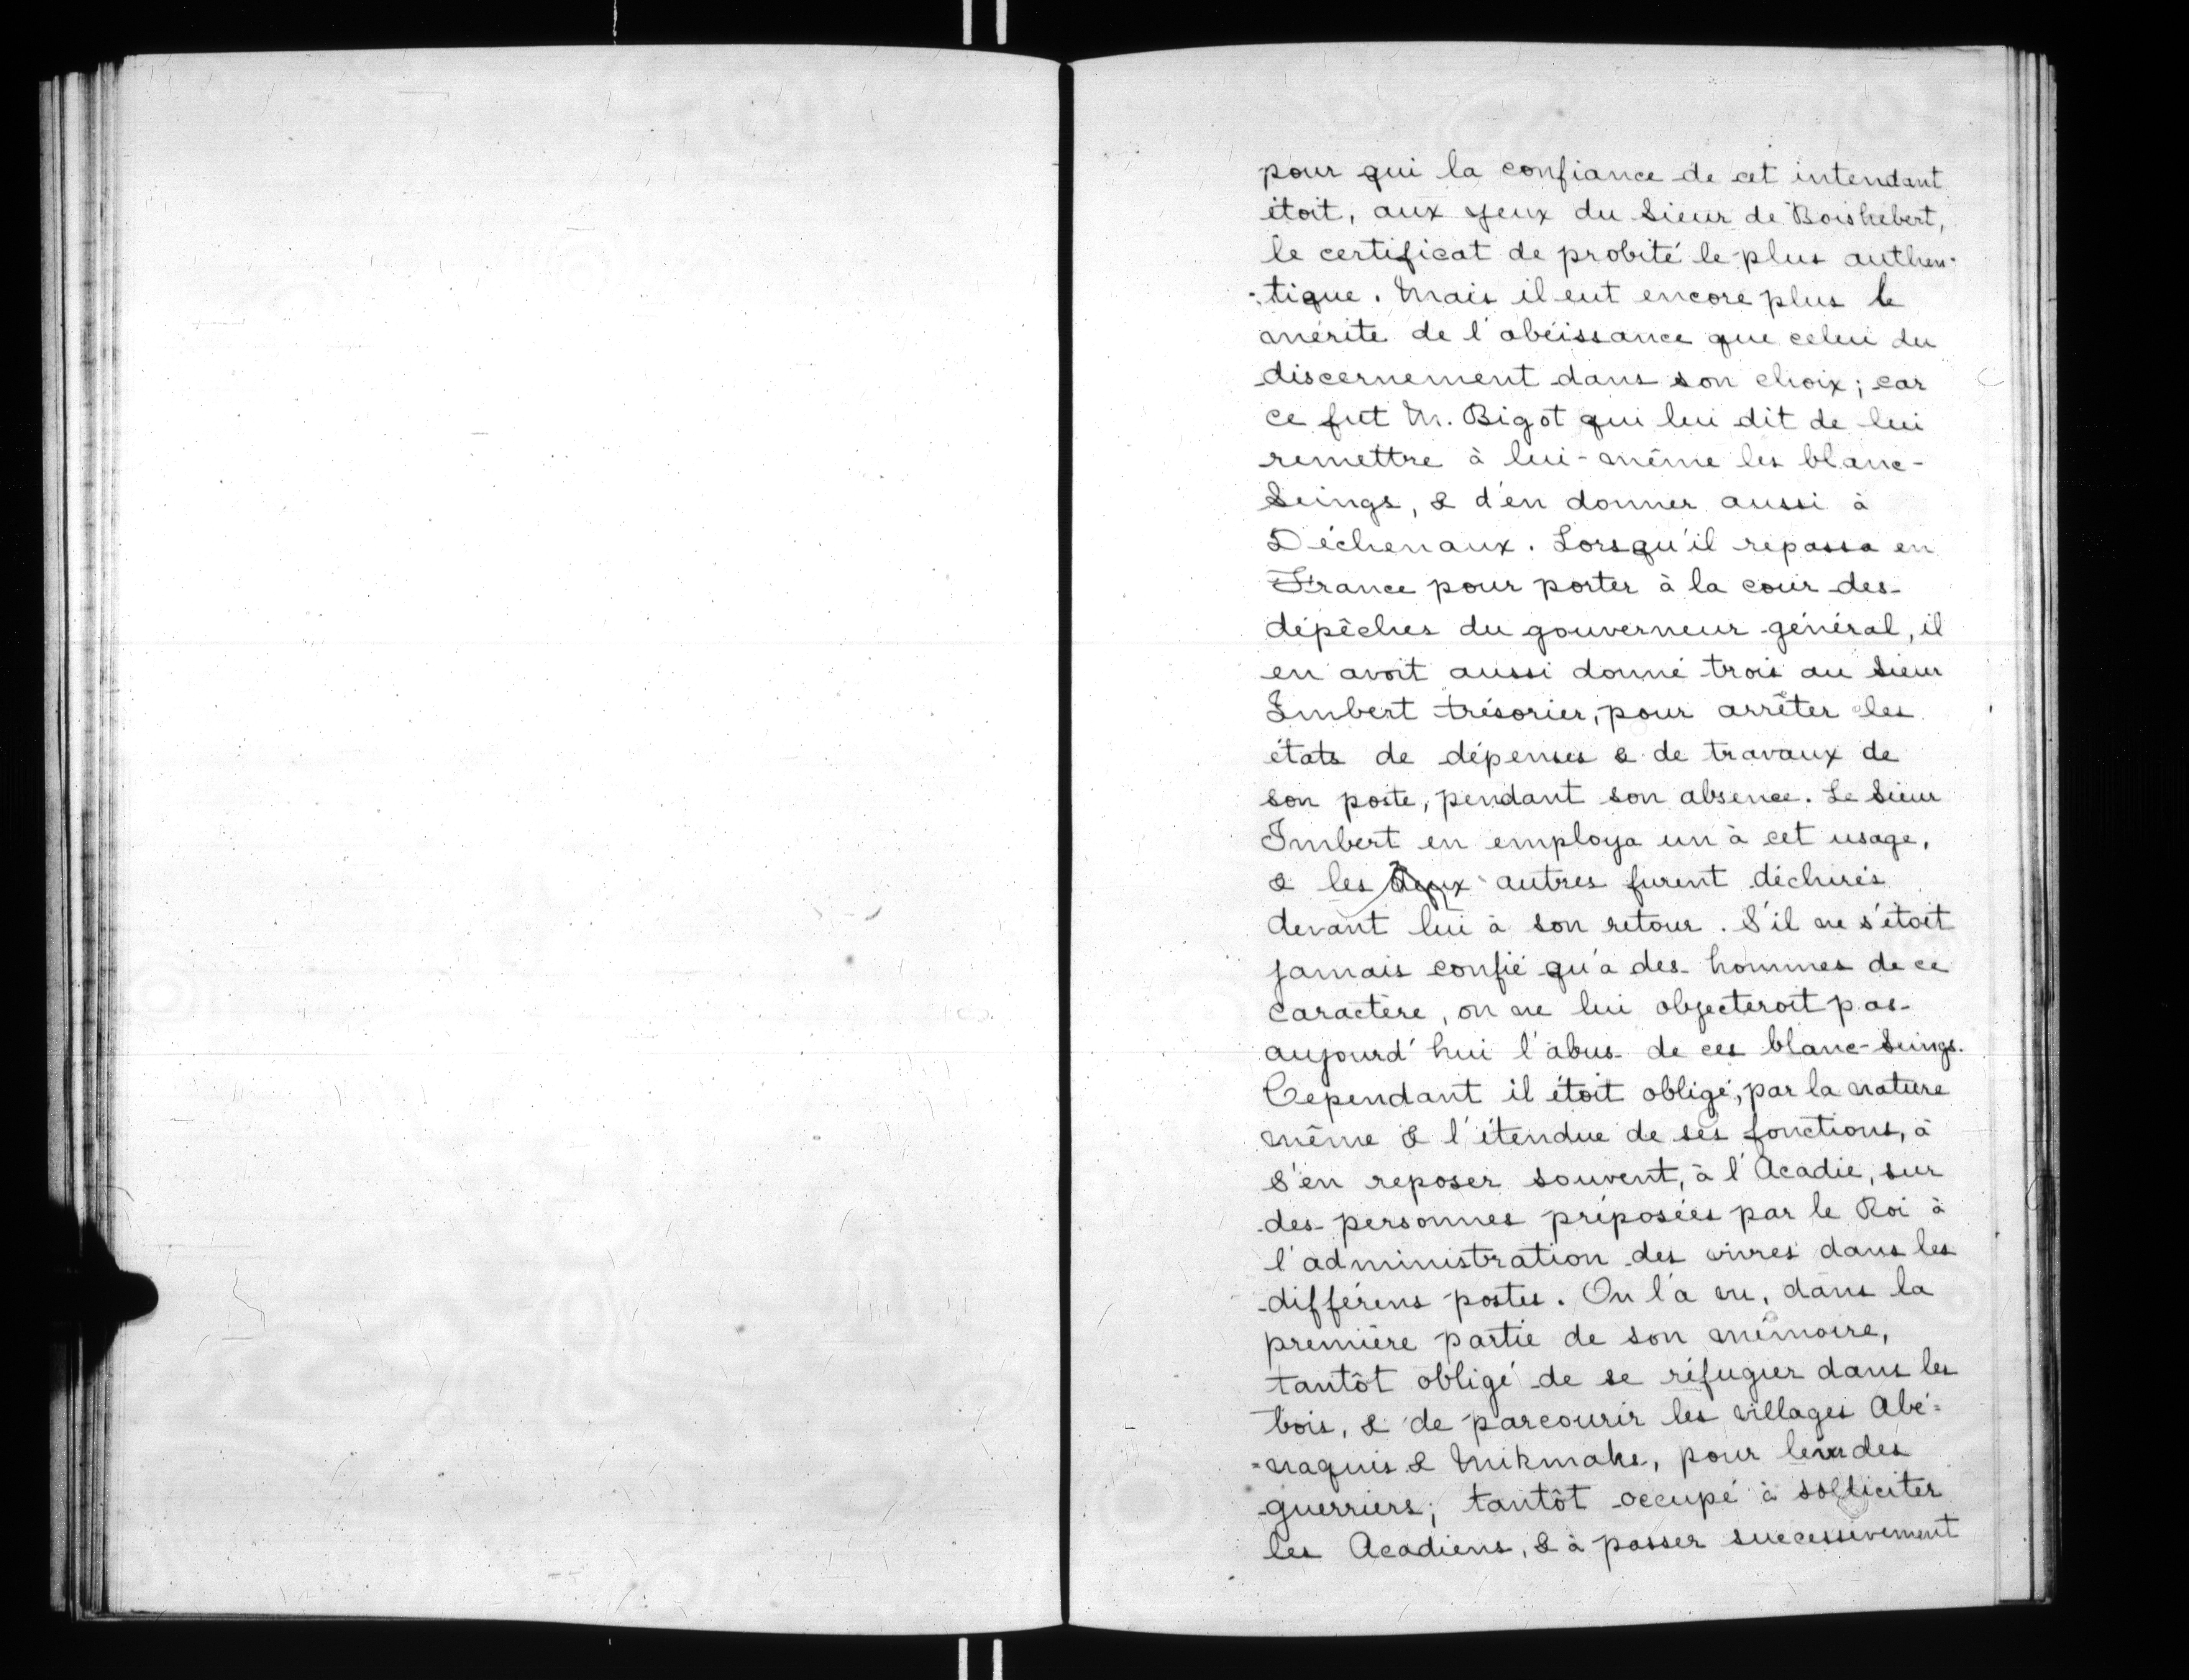 pour qui la confiance de cet intendant
étoit, aux yeux du Sieur de Boishébert,
le certificat de probité le plus authen-
-tique. Mais il eut encore plus le
mérite de l'obéissance que celui du
discernement dans son choix; car
ce fut M. Bigot qui lui dit de lui
remettre à lui-même les blanc-
Seings, & d'en donner aussi à
Déchenaux. Lorsqu'il repassa en
France pour porter à la cour des
dépêches du gouverneur général, il
en avoit aussi donné trois au Sieur
Imbert trésorier, pour arrêter les
états de dépenses & de travaux de
son poste, pendant son absence. Le Sieur
Imbert en employa un à cet usage,
& les deux autres furent déchirés
devant lui à son retour. S'il ne s'étoit
jamais confié qu'à des hommes de ce
caractère, on ne lui objecteroit pas
aujourd'hui l'abus de ces blanc-Seings.
Cependant il étoit obligé, par la nature
même & l'étendue de ses fonctions, à
s'en reposer souvent, à l'Acadie, sur
des personnes préposées par le Roi à
l'administration des vivres dans les
différens postes. On l'a vu, dans la
première partie de son mémoire,
tantôt obligé de se réfugier dans les
bois, & de parcourir les villages Abé=
=naquis & Mikmaks, pour lever des
guerriers; tantôt occupé à solliciter
les Acadiens, & à passer successivement